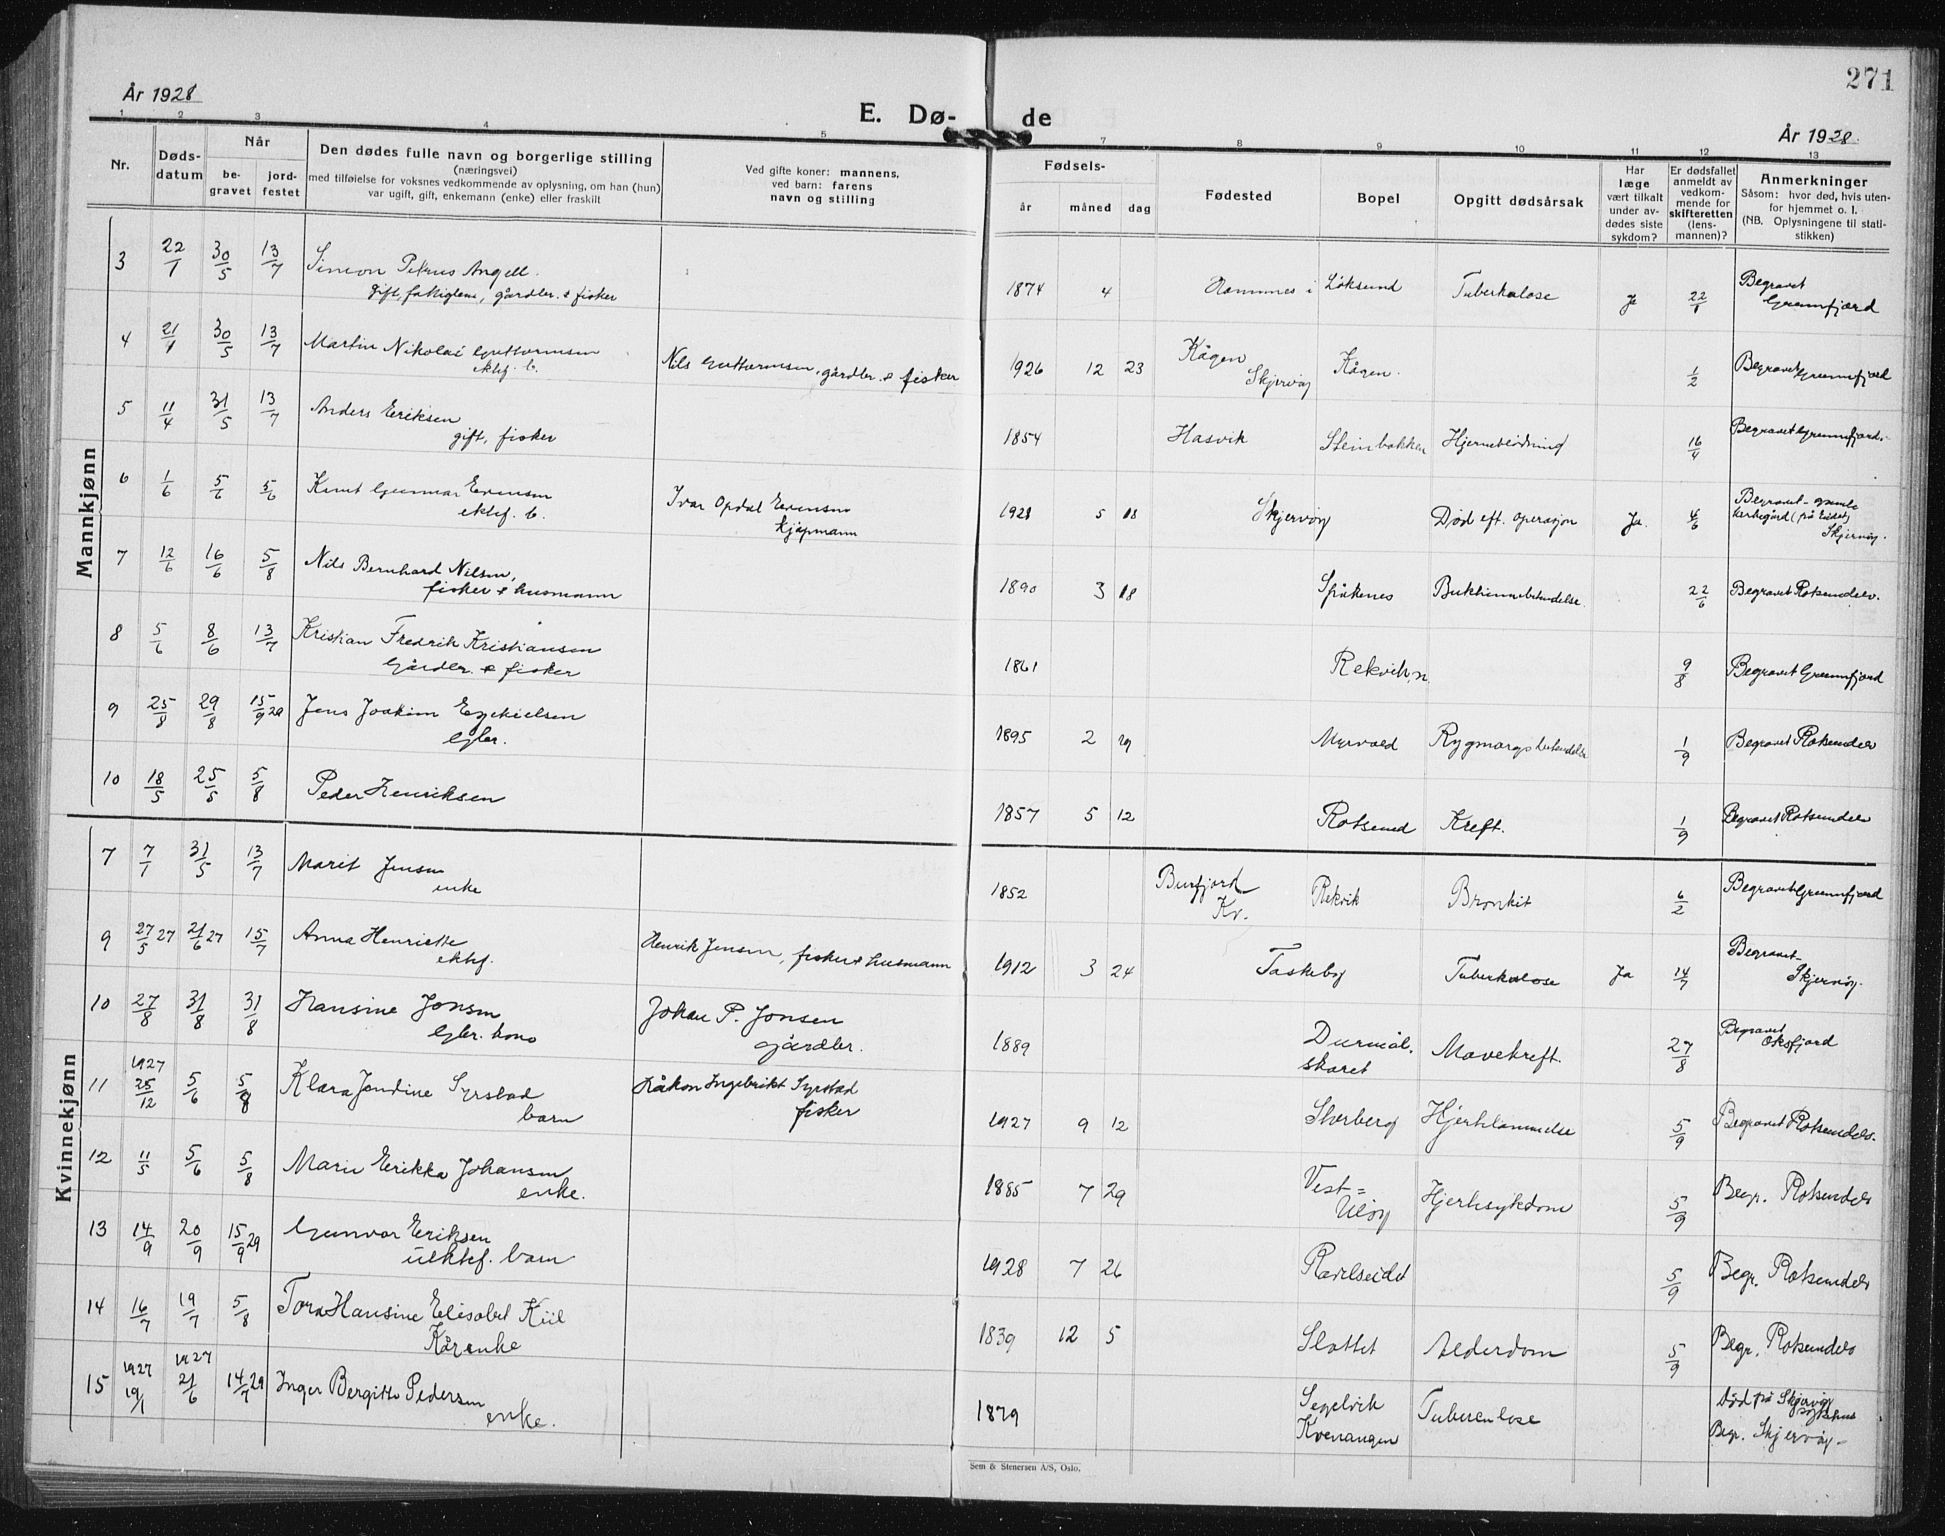 271
År 1928
E. Dø-
de
År 1928.
1 2 3 4 5 7 8 9 10 11 12 13
Nr.
Døds-
datum
Når
be-
gravet
jord-
festet
Den dødes fulle navn og borgerlige stilling
(næringsvei)
med tilføielse for voksnes vedkommende av oplysning, om han (hun)
var ugift, gift, enkemann (enke) eller fraskilt
Ved gifte koner: mannens,
ved barn: farens
navn og stilling
Fødsels-
år måned dag
Fødested
Bopel
Opgitt dødsårsak
Har
læge
vært tilkalt
under av-
dødes siste
sykdom?
Er dødsfallet
anmeldt av
vedkom-
mende for
skifteretten
(lens-
mannen)?
Anmerkninger
Såsom: hvor død, hvis uten-
for hjemmet o. l.
(NB. Oplysningene til stati-
stikken)
Mannkjønn
3 22/1 30/5 13/7 Simon Petrus Angell. 1874 4 i Löksund Tuberkulose Ja 22/1 Begravet
gift, gårdbr. & fisker
4 21/1 30/5 13/7 Martin Nikolai Guttormsen Nils Guttormsen, gårdbr. & fisker 1926 12 23 Kågen Kågen. 1/2 Begravet
ektef. b. Skjervöy
5 11/4 31/5 13/7 Anders Eriksen 1854 Hasvik Steinbakken Hjerneblödning 16/4 Begravet
gift, fisker
6 1/6 5/6 5/6 Knut Gunnar Evensen Ivar Opdal Evensen 1928 5 18 Skjervöy Död eft. operasjon Ja. 4/6 Begravet gamle
ektef. b. kjöpmann kirkegård (på Eidet)
Skjervöy.
7 12/6 16/6 5/8 Nils Bernhard Nilsen, 1890 3 18 Spåkenes 22/6 Begravet Rotsundelv.
fisker & husmann
8 5/6 8/6 13/7 Kristian Fredrik Kristiansen 1861 Rekvik 9/8 Begravet
Gårdbr. & fisker
9 25/8 29/8 15/9 29 Jens Joakim Ezekielsen 1895 2 19 Myrvold 1/9 Begravet Rotsundelv
Gbr.
10 18/5 25/5 5/8 Peder Henriksen 1857 5 12 Rotsund Kreft. 1/9 Begravet Rotsundelv
Kvinnekjønn
7 7/1 31/5 13/7 Marit Jensen 1852 Burfjord Rekvik Bronkit 6/2 Begravet
enke Kv.
9 27/5 27 21/6 27 15/7 Anna Henriette Henrik Jensen, fisker & husmann 1912 3 24 Taskeby Tuberkulose Ja 14/7 Begravet
ektef. Skjervöy.
10 27/8 31/8 31/8 Hansine Jonsen Johan P. Jonsen 1889 Durmål- Mavekreft. 27/8 Begravet
Gbr. kone gårdbr. skaret Oksfjord
11 1927 25/12 5/6 5/8 Klara Jendine Syrstad Håkon Ingebrikt Syrstad 1927 9 12 Storberg Hjertelammelse 5/9 Begravet Rotsundelv.
barn fisker
12 11/5 5/6 5/8 Marie Erikka Johansen 1885 7 29 Vest= Hjertesykdom 5/9 Begr. Rotsundelv
enke. Uløy
13 14/9 20/9 15/9 29 Gunvor Eriksen 1928 7 26 Ravelseidet 5/9 Begr. Rotsundelv
uektef. barn
14 16/7 19/7 5/8 Tora Hansine Elisabet Kiil 1839 12 5 Slottet Alderdom 5/9 Begr. Rotsundelv
Kårenke
15 1927 19/1 1927 21/6 14/7 29 Inger Bergitte Pedersen 1879 Segelvik Tuberculose Död på Skjervöy
enke. Kvenangen sykehus
Begr. Skjervöy
Sem & Stenersen A/S, Oslo.